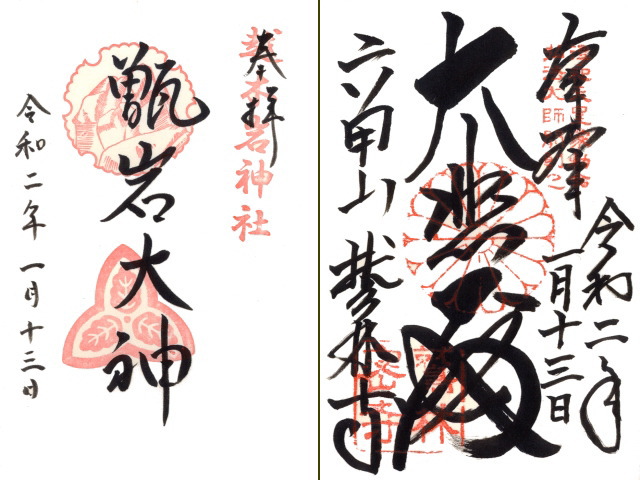 奉拝
越木岩神社
甑岩大神
令和二年一月十三日
奉拝
令和二年
一月十三日
大黒殿
六甲山
鷲林寺